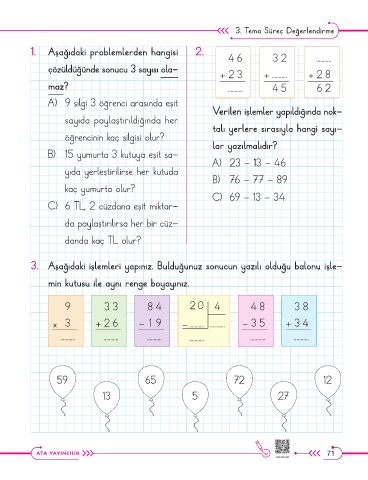 3. Tema Süreç Değerlendirme
1. Aşağıdaki problemlerden hangisi
çözüldüğünde sonucu 3 sayısı ola-
maz?
A) 9 silgi 3 öğrenci arasında eşit
sayıda paylaştırıldığında her
öğrencinin kaç silgisi olur?
B) 15 yumurta 3 kutuya eşit sa-
yıda yerleştirilirse her kutuda
kaç yumurta olur?
C) 6 TL, 2 cüzdana eşit miktar-
da paylaştırılırsa her bir cüz-
danda kaç TL olur?
2.
46 32 ........
+ 23 + ........ + 28
........ 45 62
Verilen işlemler yapıldığında nok-
talı yerlere sırasıyla hangi sayı-
lar yazılmalıdır?
A) 23 – 13 – 46
B) 76 – 77 – 89
C) 69 – 13 – 34
3. Aşağıdaki işlemleri yapınız. Bulduğunuz sonucun yazılı olduğu balonu işle-
min kutusu ile aynı renge boyayınız.
9 33 84 20 4 48 38
x 3 + 26 – 19 – ........ ........ – 35 + 34
........ ........ ........ ........ ........ ........
59 65 72 12
13 5 27
ATA YAYINCILIK
71